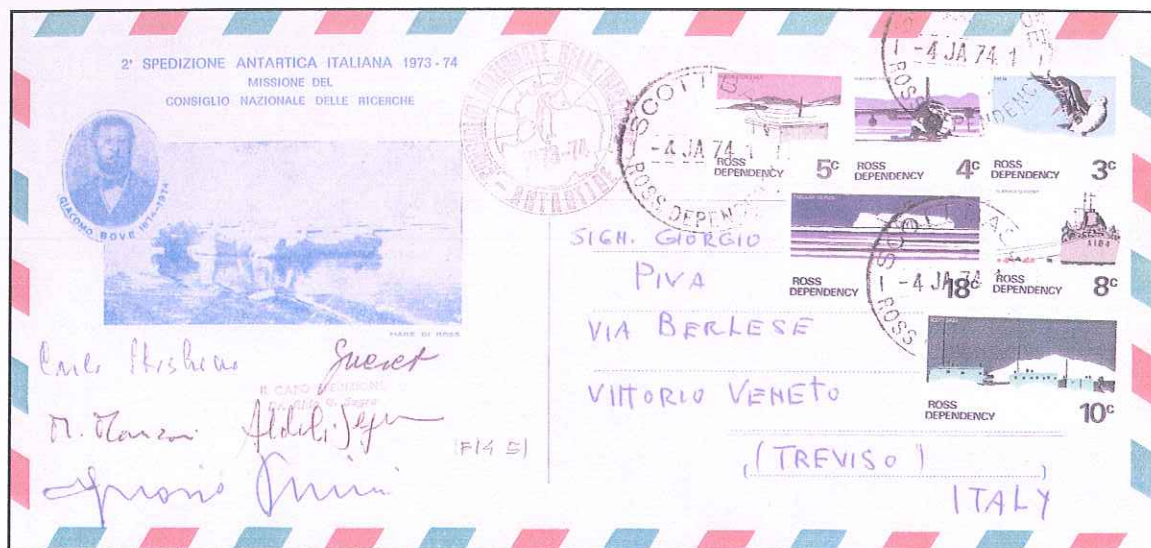 2ª SPEDIZIONE ANTARTICA ITALIANA 1973-74
MISSIONE DEL
CONSIGLIO NAZIONALE DELLE RICERCHE
GIACOMO BOVE 1874-1974
MARE DI ROSS
IL CAPO SPEDIZIONE
Segre
M. Manzoni
F14 S
1973-74
SCOTT BASE
-4 JA 74 1
ROSS DEPENDENCY
-4 JA 74 1
ROSS DEPENDENCY
-4 JA 74
ROSS
ROSS
DEPENDENCY
5c
ROSS
4c
ROSS
DEPENDENCY
3c
ROSS
DEPENDENCY
18c
A184
ROSS
DEPENDENCY
8c
ROSS
DEPENDENCY
10c
SIGN. GIORGIO
PIVA
VIA BERLESE
VITTORIO VENETO
(TREVISO)
ITALY